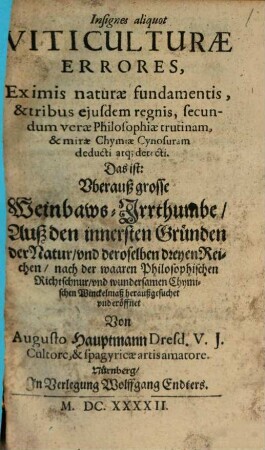 Insignes aliquot
VITICULTURÆ
ERRORES,
Eximis naturæ fundamentis,
& tribus ejusdem regnis, secun-
dum veræ Philosophiæ trutinam,
& miræ Chymiæ Cynosuram
deducti atq; detecti.
Das ist:
Vberauß grosse
Weinbaws-Irrthumbe/
Auß den innersten Gründen
der Natur/vnd deroselben dreyen Rei-
chen/ nach der waaren Philosophischen
Richtschnur/vnd wundersamen Chymi-
schen Winckelmaß heraußgesuchet
vnd eröffnet
Von
Augusto Hauptmann Dresd. V. J.
Cultore, & spagyricæ artis amatore.
Nürnberg/
In Verlegung Wolffgang Endters.
M. DC. XXXXII.